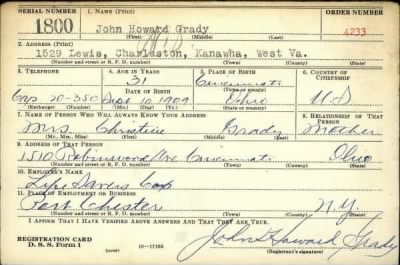 SERIAL NUMBER 1. NAME (Print) ORDER NUMBER
1800 John Howard Grady 4233
(First) (Middle) (Last)
2. ADDRESS (Print)
1529 Lewis, Charleston, Kanawha, West Va.
(Number and street or R. F. D. number) (Town) (County) (State)
3. TELEPHONE 4. AGE IN YEARS 5. PLACE OF BIRTH 6. COUNTRY OF CITIZENSHIP
31 Cincinnati
DATE OF BIRTH (Town or county)
Cap 20-380 Sept 10 1909 Ohio U S
(Exchange) (Number) (Mo.) (Day) (Yr.) (State or country)
7. NAME OF PERSON WHO WILL ALWAYS KNOW YOUR ADDRESS 8. RELATIONSHIP OF THAT PERSON
Mrs. Christine Grady Mother
(Mr., Mrs., Miss) (First) (Middle) (Last)
9. ADDRESS OF THAT PERSON
1510 Robinwood Ave Cincinnati Ohio
(Number and street or R. F. D. number) (Town) (County) (State)
10. EMPLOYER'S NAME
Life Savers Corp
11. PLACE OF EMPLOYMENT OR BUSINESS
Port Chester N.Y.
(Number and street or R. F. D. number) (Town) (County) (State)
I AFFIRM THAT I HAVE VERIFIED ABOVE ANSWERS AND THAT THEY ARE TRUE.
REGISTRATION CARD
D. S. S. Form 1 16-17105 John Howard Grady
(Registrant's signature)